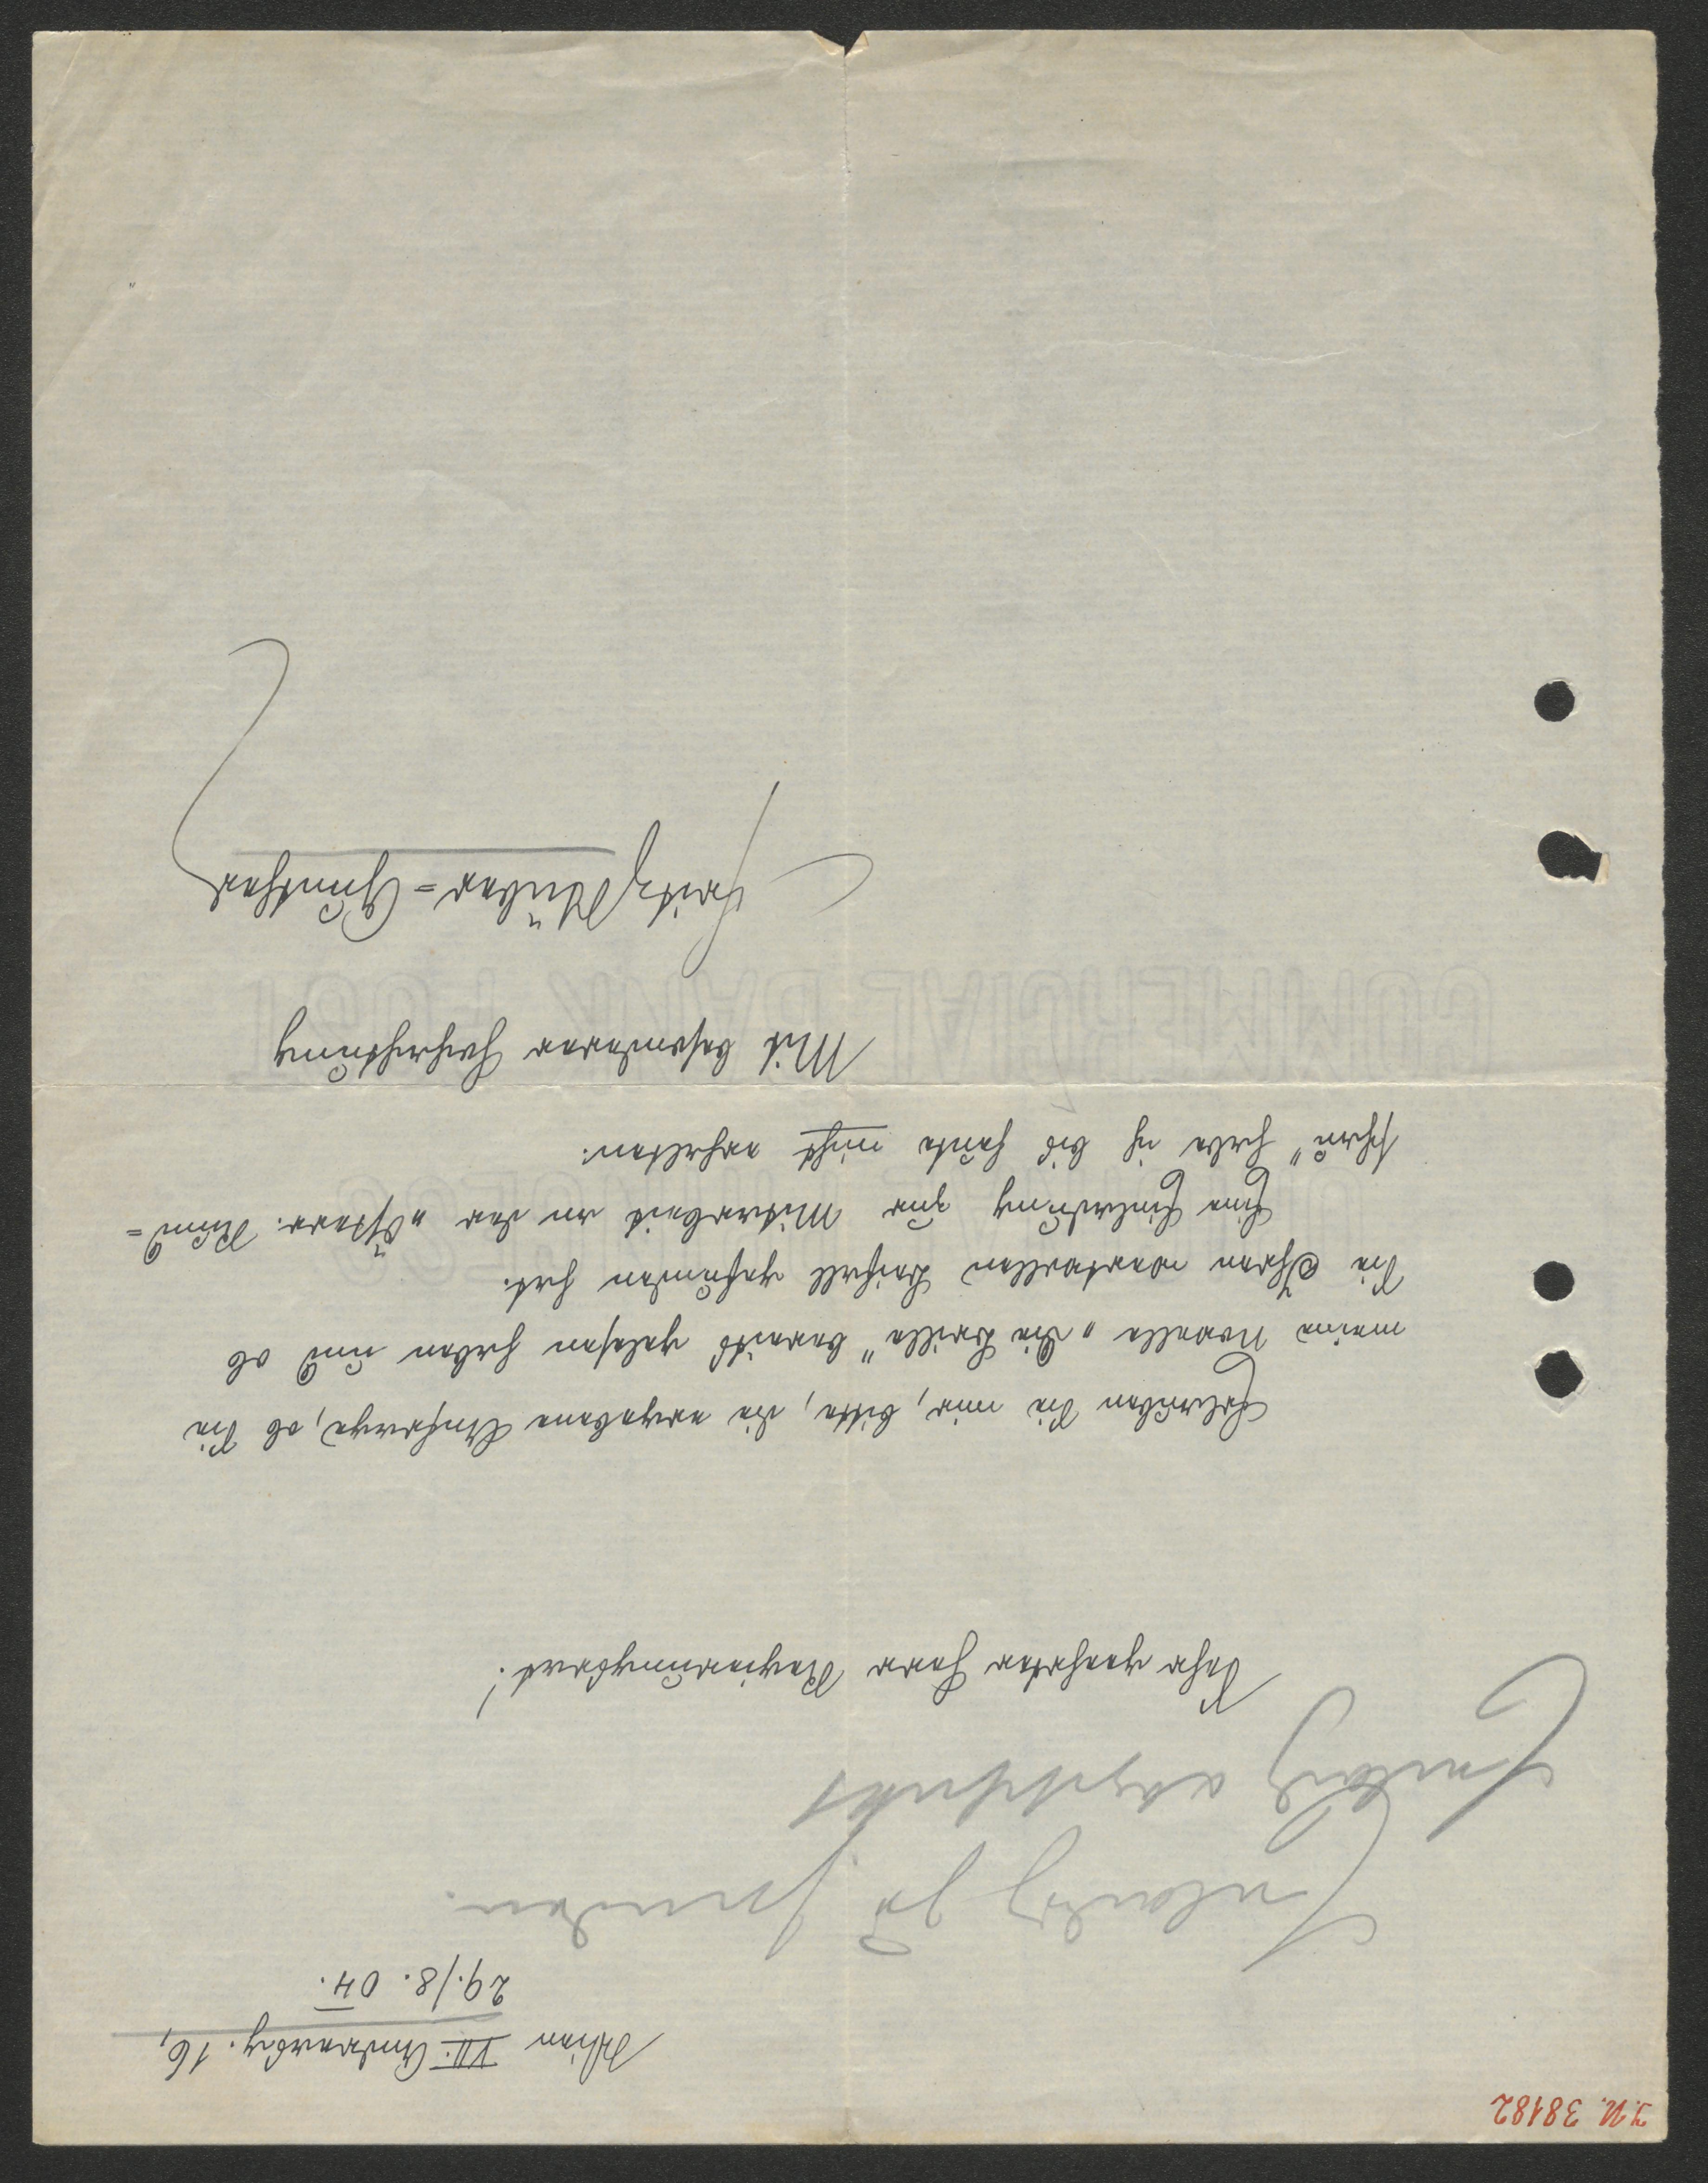 J.N. 38182
Wien VII. Andreasg. 16,
29./8. 04.
zu senden.
Sehr geehrter Herr Regierungsrat!
Erlauben Sie mir, bitte, die ergebene Anfrage, ob Sie
meine Novelle „Die Brille" bereits gelesen haben und ob
sie Ihren wertvollen Beifall gefunden hat.
Eine Einladung zur Mitarbeit an der „Österr. Rund=
schau" habe ich bis heute nicht erhalten.
Mit besonderer Hochachtung
Fritz Stüber=Gunther
COMMERCIAL BANK POST